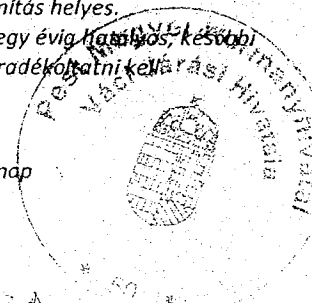 mítás helyes.
egy évig hatályos, későbbi
radékoltatni kell.
nap
Pest Megyei Kormányhivatal
Váci Járási Hivatala